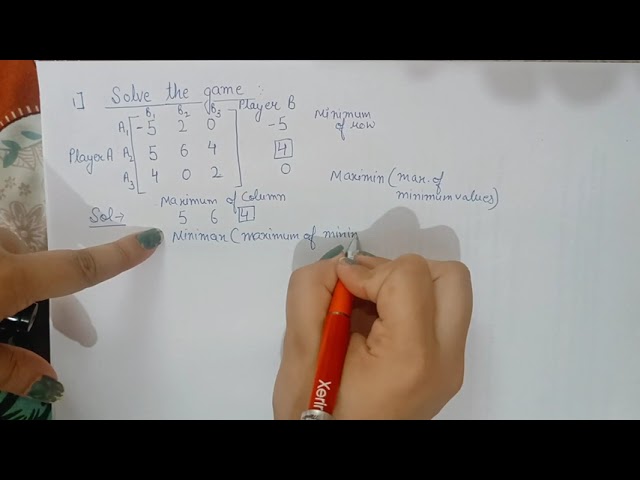 1] Solve the game :
Player B
B1 B2 B3
Minimum of row
A1 -5 2 0 -5
Player A A2 5 6 4 4
A3 4 0 2 0
Maximin (max. of minimum values)
Maximum of Column
Sol→ 5 6 4
Minimax (maximum of minim
Xerin